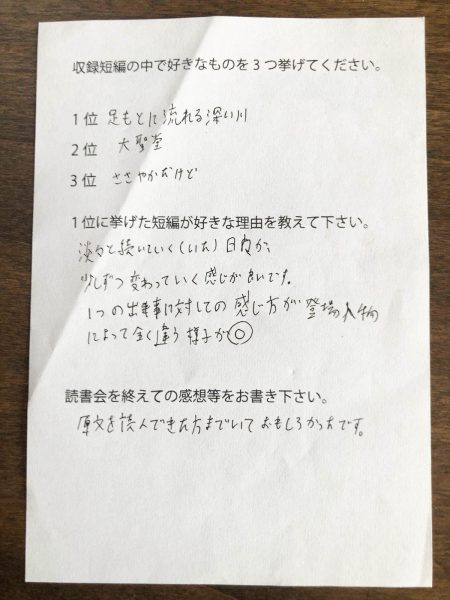 収録短編の中で好きなものを3つ挙げてください。
1位 足もとに流れる深い川
2位 大聖堂
3位 ささやかだけど
1位に挙げた短編が好きな理由を教えて下さい。
淡々と続いていく(いた)日常が、
少しずつ変わっていく感じが良いです。
1つの出来事に対しての感じ方が登場人物
によって全く違う様子が◎
読書会を終えての感想等をお書き下さい。
原文を読んできた方までいておもしろかったです。